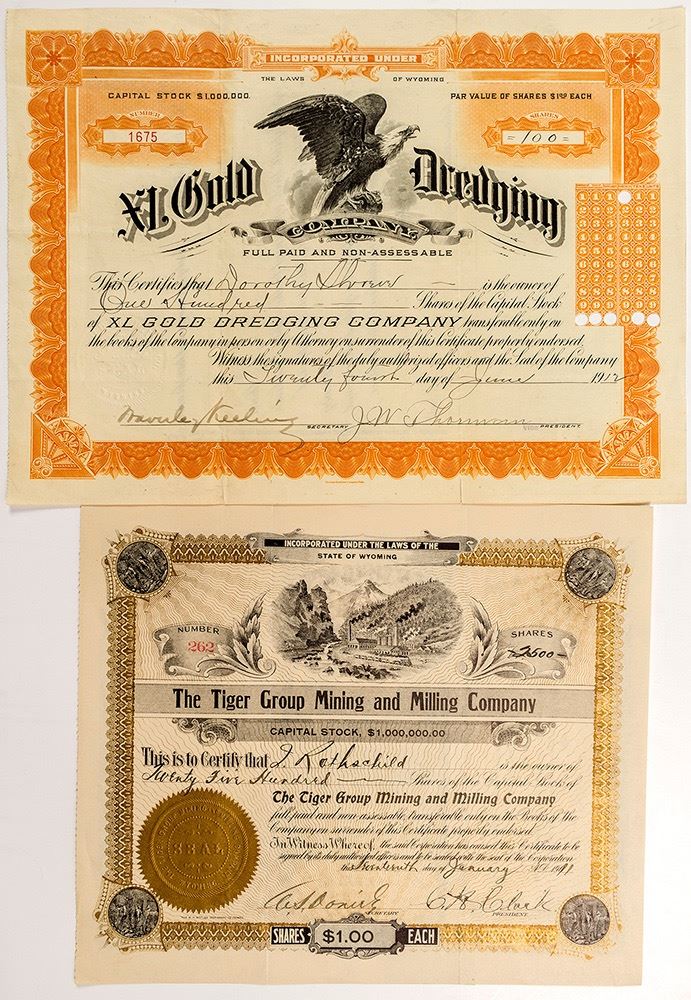 INCORPORATED UNDER
THE LAWS OF WYOMING
CAPITAL STOCK $1,000,000. PAR VALUE OF SHARES $1.00 EACH
NUMBER SHARES
1675 =100=
XL Gold Dredging
COMPANY
FULL PAID AND NON-ASSESSABLE
This Certifies that Dorothy is the owner of
One Hundred Shares of the Capital Stock
of XL GOLD DREDGING COMPANY transferable only on
the books of the Company in person or by Attorney on surrender of this Certificate properly endorsed.
Witness the signatures of the duly authorized officers and the Seal of the Company
this Twenty fourth day of June 1912
Waverley Keeling SECRETARY J W VICE PRESIDENT.
INCORPORATED UNDER THE LAWS OF THE
STATE OF WYOMING
NUMBER SHARES
262 2500
The Tiger Group Mining and Milling Company
CAPITAL STOCK, $1,000,000.00
This is to Certify that J. Rothschild is the owner of
Twenty Five Hundred Shares of the Capital Stock of
The Tiger Group Mining and Milling Company
full paid and non-assessable, transferable only on the Books of the
Company on surrender of this Certificate properly endorsed.
In Witness Whereof, the said Corporation has caused this Certificate to be
signed by its duly authorized officers and to be sealed with the seal of the Corporation
this day of January 1911
SEAL
SECRETARY C. H. Clark PRESIDENT.
SHARES $1.00 EACH